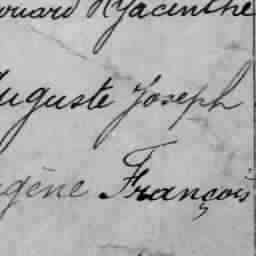 ouard Hyacinthe
Auguste Joseph
gène François